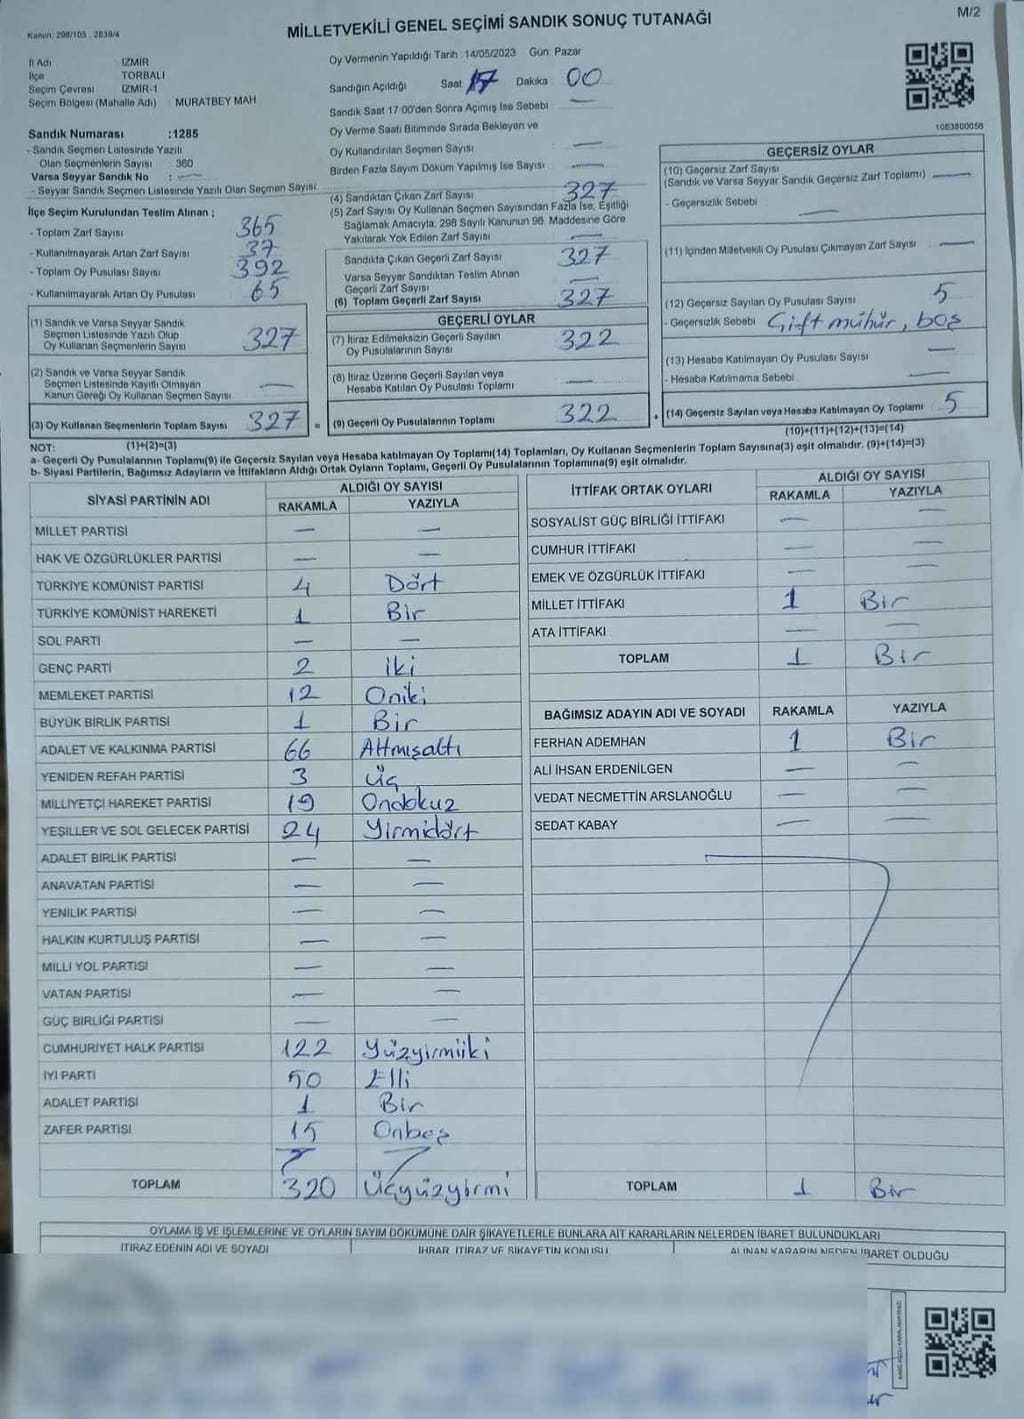 Kanun: 298/105 , 2839/4
MİLLETVEKİLİ GENEL SEÇİMİ SANDIK SONUÇ TUTANAĞI
M/2
İl Adı İZMİR
İlçe TORBALI
Seçim Çevresi İZMİR-1
Seçim Bölgesi (Mahalle Adı) MURATBEY MAH
Sandık Numarası :1285
- Sandık Seçmen Listesinde Yazılı
Olan Seçmenlerin Sayısı : 360
Varsa Seyyar Sandık No : —
- Seyyar Sandık Seçmen Listesinde Yazılı Olan Seçmen Sayısı
İlçe Seçim Kurulundan Teslim Alınan ;
- Toplam Zarf Sayısı 365
- Kullanılmayarak Artan Zarf Sayısı 37
- Toplam Oy Pusulası Sayısı 392
- Kullanılmayarak Artan Oy Pusulası 65
(1) Sandık ve Varsa Seyyar Sandık
Seçmen Listesinde Yazılı Olup
Oy Kullanan Seçmenlerin Sayısı 327
(2) Sandık ve Varsa Seyyar Sandık
Seçmen Listesinde Kayıtlı Olmayan
Kanun Gereği Oy Kullanan Seçmen Sayısı —
(3) Oy Kullanan Seçmenlerin Toplam Sayısı 327 =
Oy Vermenin Yapıldığı Tarih :14/05/2023 Gün: Pazar
Sandığın Açıldığı Saat 17 Dakika 00
Sandık Saat 17:00'den Sonra Açımış İse Sebebi —
Oy Verme Saati Bitiminde Sırada Bekleyen ve
Oy Kullandırılan Seçmen Sayısı —
Birden Fazla Sayım Döküm Yapılmış İse Sayısı —
(4) Sandıktan Çıkan Zarf Sayısı 327
(5) Zarf Sayısı Oy Kullanan Seçmen Sayısından Fazla İse, Eşitliği
Sağlamak Amacıyla, 298 Sayılı Kanunun 98. Maddesine Göre
Yakılarak Yok Edilen Zarf Sayısı —
Sandıkta Çıkan Geçerli Zarf Sayısı 327
Varsa Seyyar Sandıktan Teslim Alınan
Geçerli Zarf Sayısı —
(6) Toplam Geçerli Zarf Sayısı 327
GEÇERLİ OYLAR
(7) İtiraz Edilmeksizin Geçerli Sayılan
Oy Pusulalarının Sayısı 322
(8) İtiraz Üzerine Geçerli Sayılan veya
Hesaba Katılan Oy Pusulası Toplamı —
(9) Geçerli Oy Pusulalarının Toplamı 322 +
1083800056
GEÇERSİZ OYLAR
(10) Geçersiz Zarf Sayısı
(Sandık ve Varsa Seyyar Sandık Geçersiz Zarf Toplamı) —
- Geçersizlik Sebebi —
(11) İçinden Milletvekili Oy Pusulası Çıkmayan Zarf Sayısı —
(12) Geçersiz Sayılan Oy Pusulası Sayısı 5
- Geçersizlik Sebebi Çift mühür, boş
(13) Hesaba Katılmayan Oy Pusulası Sayısı —
- Hesaba Katılmama Sebebi —
(14) Geçersiz Sayılan veya Hesaba Katılmayan Oy Toplamı 5
NOT: (1)+(2)=(3) (10)+(11)+(12)+(13)=(14)
a- Geçerli Oy Pusulalarının Toplamı(9) ile Geçersiz Sayılan veya Hesaba katılmayan Oy Toplamı(14) Toplamları, Oy Kullanan Seçmenlerin Toplam Sayısına(3) eşit olmalıdır. (9)+(14)=(3)
b- Siyasi Partilerin, Bağımsız Adayların ve İttifakların Aldığı Ortak Oyların Toplamı, Geçerli Oy Pusulalarının Toplamına(9) eşit olmalıdır.
SİYASİ PARTİNİN ADI ALDIĞI OY SAYISI
RAKAMLA YAZIYLA
MİLLET PARTİSİ — —
HAK VE ÖZGÜRLÜKLER PARTİSİ — —
TÜRKİYE KOMÜNİST PARTİSİ 4 Dört
TÜRKİYE KOMÜNİST HAREKETİ 1 Bir
SOL PARTİ — —
GENÇ PARTİ 2 iki
MEMLEKET PARTİSİ 12 Oniki
BÜYÜK BİRLİK PARTİSİ 1 Bir
ADALET VE KALKINMA PARTİSİ 66 Altmışaltı
YENİDEN REFAH PARTİSİ 3 Üç
MİLLİYETÇİ HAREKET PARTİSİ 19 Ondokuz
YEŞİLLER VE SOL GELECEK PARTİSİ 24 Yirmidört
ADALET BİRLİK PARTİSİ — —
ANAVATAN PARTİSİ — —
YENİLİK PARTİSİ — —
HALKIN KURTULUŞ PARTİSİ — —
MİLLİ YOL PARTİSİ — —
VATAN PARTİSİ — —
GÜÇ BİRLİĞİ PARTİSİ — —
CUMHURİYET HALK PARTİSİ 122 Yüzyirmiiki
İYİ PARTİ 50 Elli
ADALET PARTİSİ 1 Bir
ZAFER PARTİSİ 15 Onbeş
TOPLAM 320 Üçyüzyirmi
İTTİFAK ORTAK OYLARI ALDIĞI OY SAYISI
RAKAMLA YAZIYLA
SOSYALİST GÜÇ BİRLİĞİ İTTİFAKI — —
CUMHUR İTTİFAKI — —
EMEK VE ÖZGÜRLÜK İTTİFAKI — —
MİLLET İTTİFAKI 1 Bir
ATA İTTİFAKI — —
TOPLAM 1 Bir
BAĞIMSIZ ADAYIN ADI VE SOYADI RAKAMLA YAZIYLA
FERHAN ADEMHAN 1 Bir
ALİ İHSAN ERDENİLGEN — —
VEDAT NECMETTİN ARSLANOĞLU — —
SEDAT KABAY — —
TOPLAM 1 Bir
OYLAMA İŞ VE İŞLEMLERİNE VE OYLARIN SAYIM DÖKÜMÜNE DAİR ŞİKAYETLERLE BUNLARA AİT KARARLARIN NELERDEN İBARET BULUNDUKLARI
İTİRAZ EDENİN ADI VE SOYADI İHBAR, İTİRAZ VE ŞİKAYETİN KONUSU ALINAN KARARIN NEDEN İBARET OLDUĞU